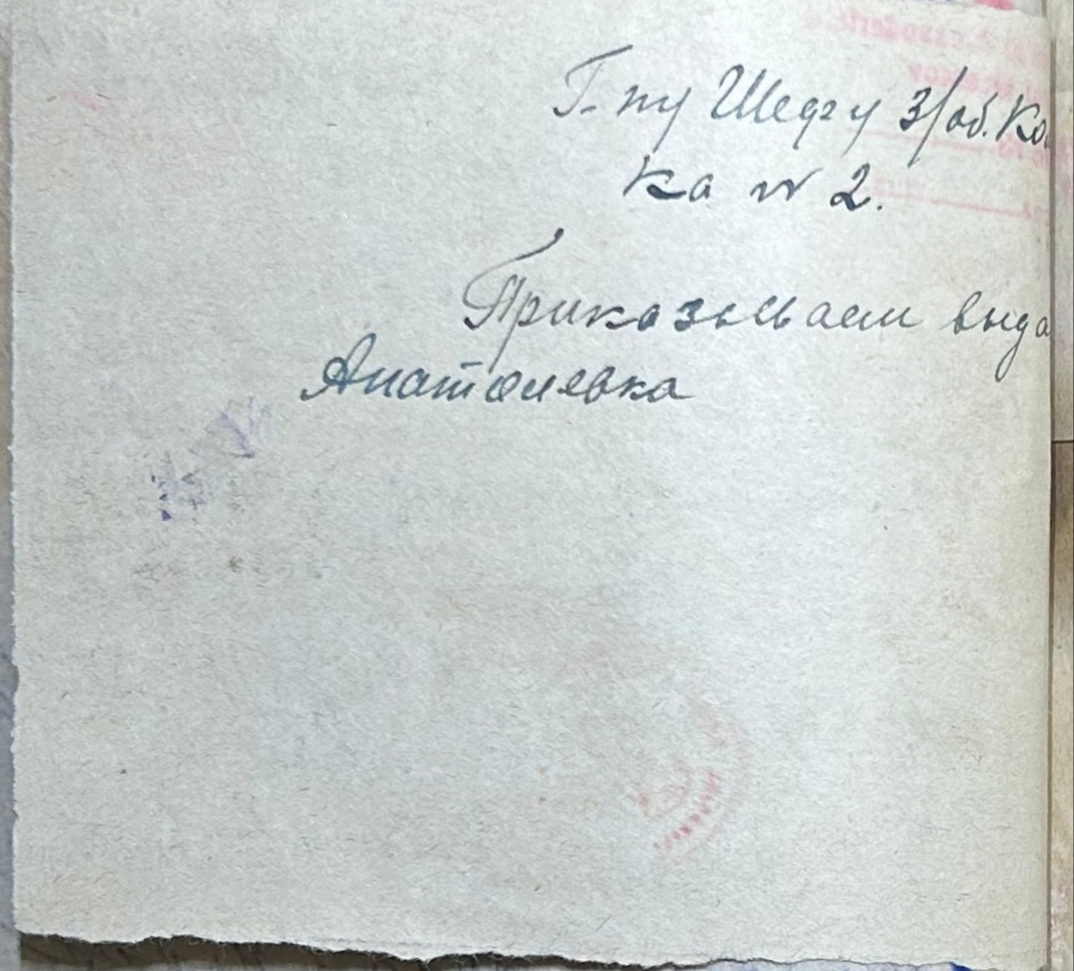 Г-ну Шефу З/об. Ко
ка № 2.
Приказываем выда
Анатолевка